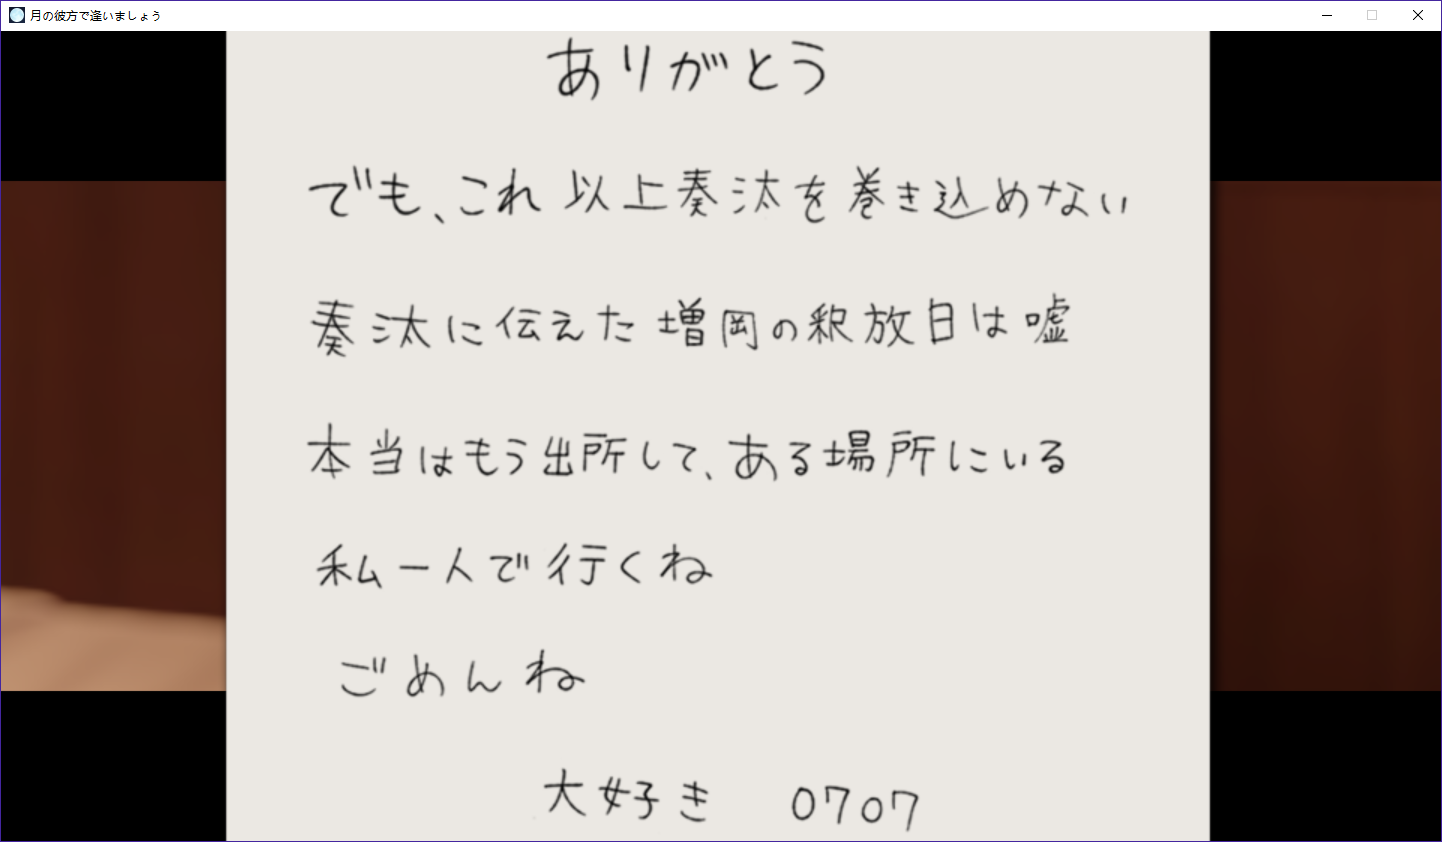 月の彼方で逢いましょう
ありがとう
でも、これ以上奏汰を巻き込めない
奏汰に伝えた増岡の釈放日は嘘
本当はもう出所して、ある場所にいる
私一人で行くね
ごめんね
大好き 0707